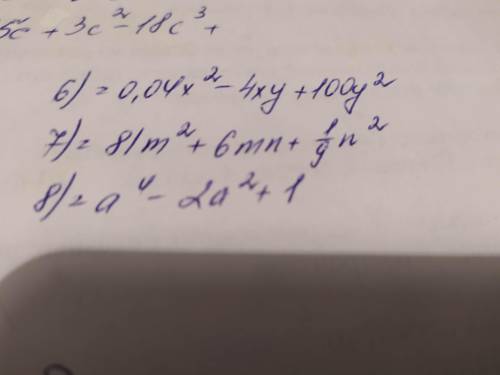 + 3c² - 18c³ +
6) = 0,04x² - 4xy + 100y²
7) = 81m² + 6mn + 1/9 n²
8) = a⁴ - 2a² + 1